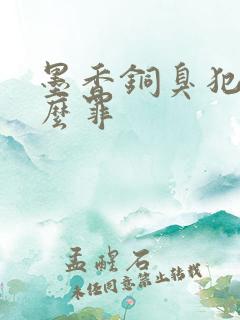 墨香銅臭犯
麼罪
孟醒石
未经同意禁止转载